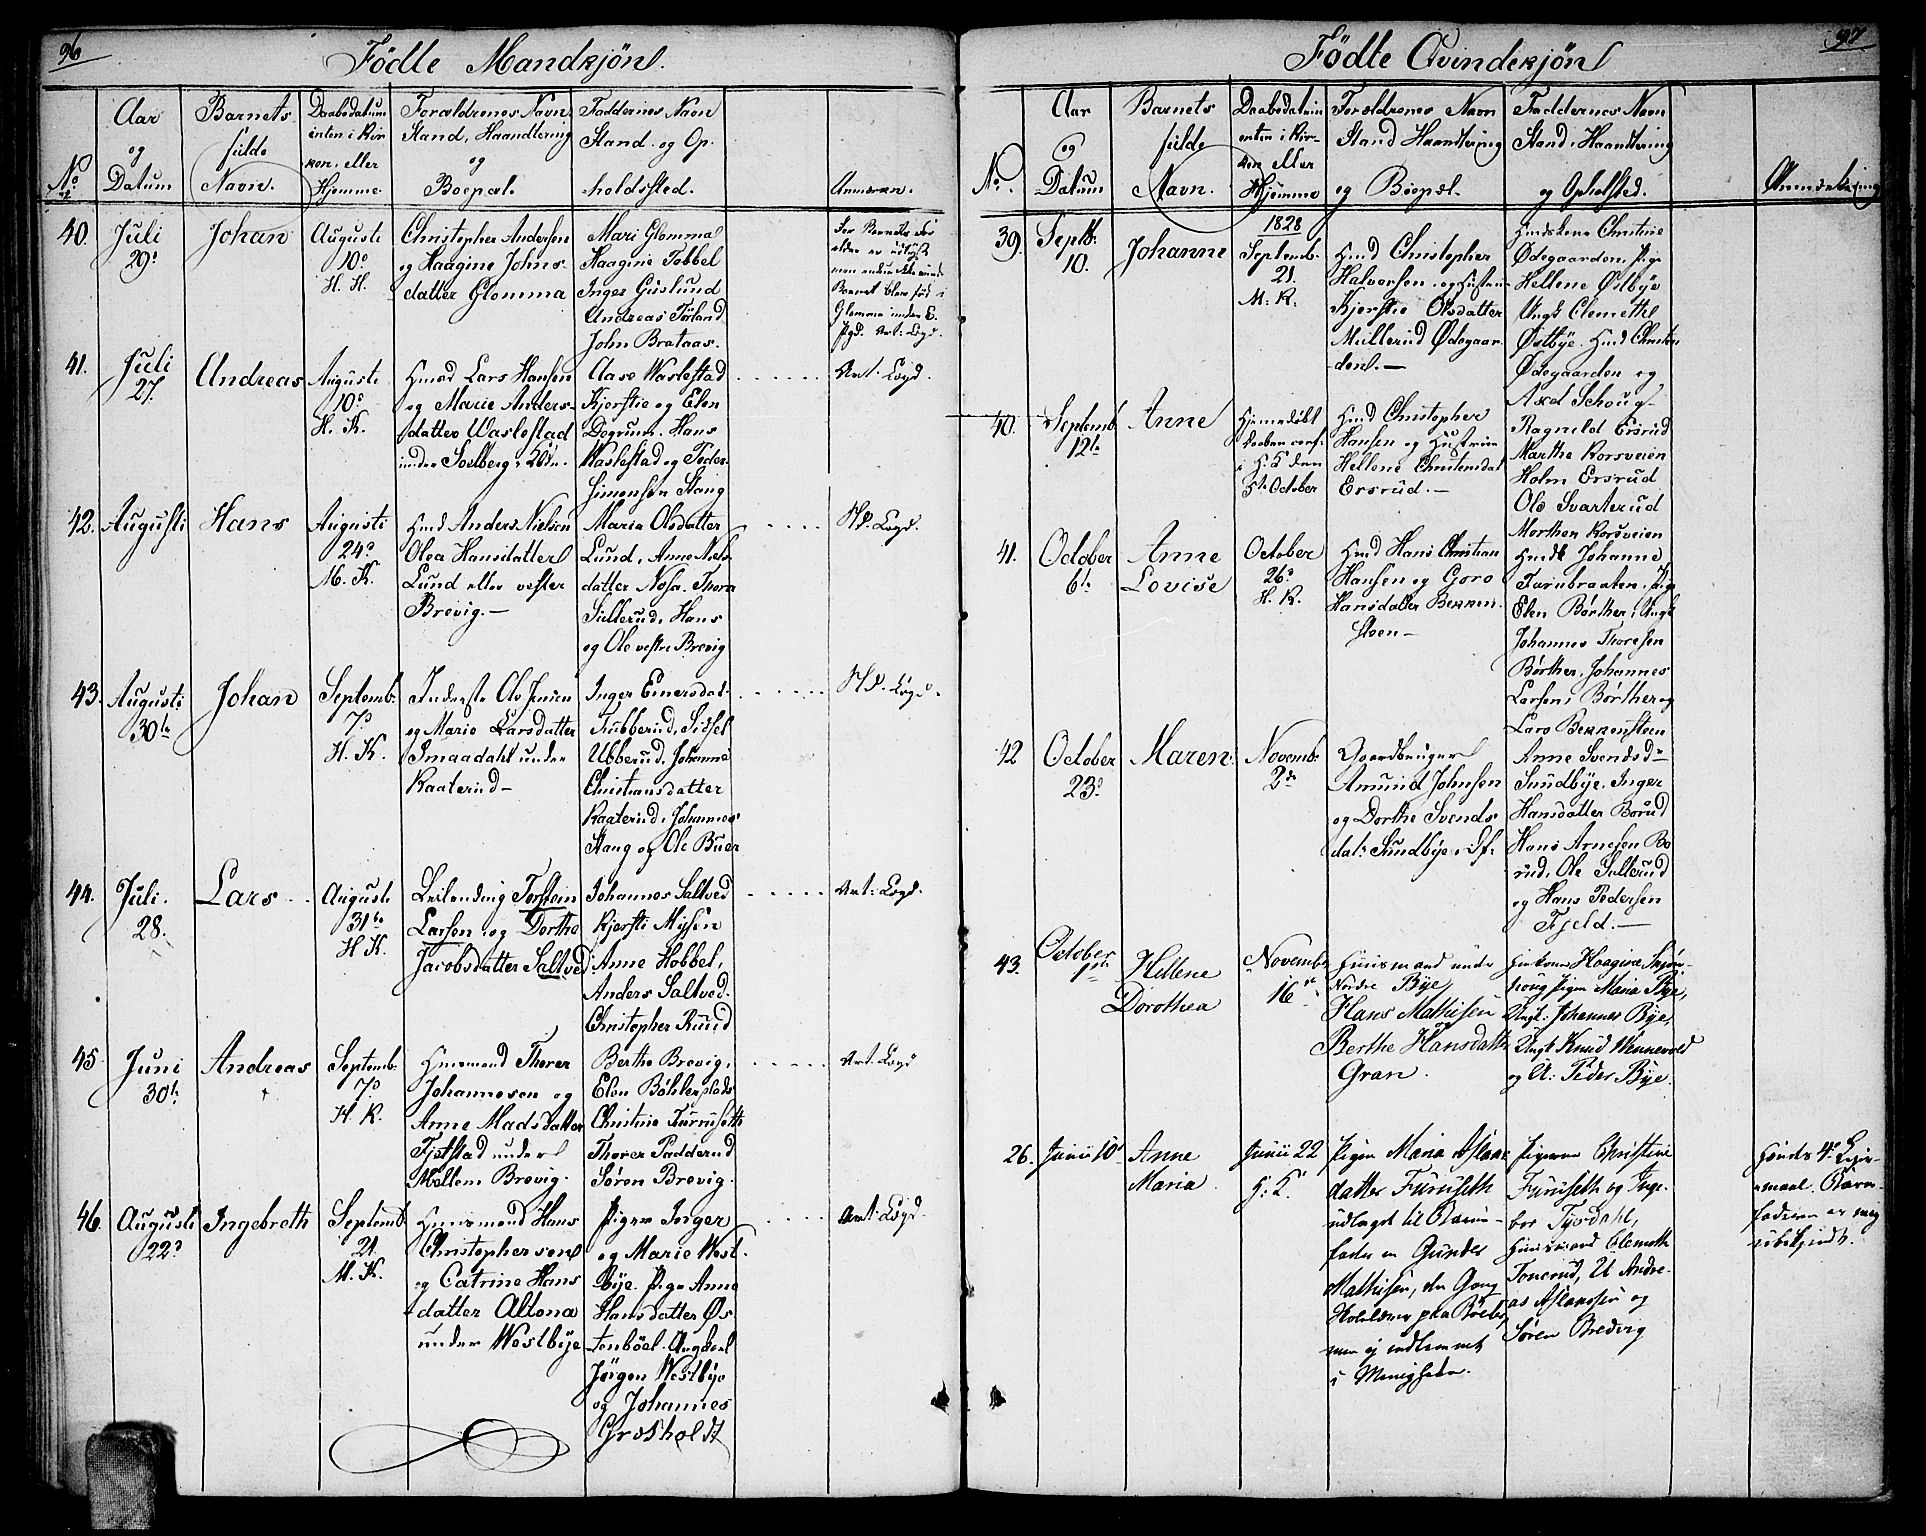 96
Fødte Mandkjøn.
No
Aar
og
Datum
Barnets
fulde
Navn.
Daabsdatum
enten i Kir
ken, eller
Hjemme.
Forældrenes Navn,
Stand, Haandtering
og
Boepæl.
Faddernes Navn
Stand og Op.
holdssted.
Anmærkn.
40.
Juli
29d
Johan
Augusti
10d
H. K.
Christopher Andersen
og Haagine Johns
datter Glomma
Mari Glomma
Haagine Tobbel
Inger Guslund
Andreas Törland
John Brataas.
For Barnets For
ældre er udlyst
men endnu ikke viede
Barnet blev fød i
Glemme under E.
Pgd. Art: Logd.
41.
Juli
27.
Andreas
Augusti
10d
H. K.
Huusmd Lars Hansen
og Marie Anders-
datter Waslestad
under Soelberg
Aase Waslestad
Kjerstie og Elen
Degrum. Hans
Waslestad og Peder
Simensøn Stang
Art. Logd.
42.
Augusti
Hans
Augusti
24d
M. K.
Hmd Anders Nielsen
Olea Hansdatter
Lund eller vester
Brevig.—
Maria Olsdatter
Lund, Anne Niels
datter Nosa. Thora
Sulterud, Hans
og Ole vestre Brevig
Nd. Logd.
43.
Augusti
30te
Johan
Septemb:
7d
H. K.
Inderste Ole Jensen
og Marie Larsdatter
Smaadahl under
Raaterud—
Inger Einersdat.
Tubberud, Sidsel
Ubberud, Johanne
Christiansdatter
Raaterud, Johannes
Stang og Ole Buer
Nd. Logd.
44.
Juli.
28.
Lars
Augusti
31te
H. K.
Leilending Torstein
Larsen og Dorthe
Jacobsdatter Saltved
Johannes Saltved
Kjersti Mysen
Anne Hobbel,
Anders Saltved.
Christopher Ruud
Art: Logd.
45.
Juni
30te
Andreas
Septemb:
7d
H. K.
Huusmand Thorer
Johannesen og
Anne Madsdatter
Fjøstad under
Mellem Brevig.
Berthe Brevig,
Elen Böhlerplads
Christine Furuseth
Thorer Padderud
Søren Brevig.
Art: Logd
46.
Augusti
22d
Ingebreth
Septemb
21.
M. K.
Huusmand Hans
Christophersen
og Catrine Hans
datter Altona
under Westbÿe
Pigen Inger
og Marie West.
bye. Pige Anne
Hansdatter Øs
tenböel. Ungkarl
Jörgen Westbÿe
og Johannes
Græsholdt
Art: Logd.
97
Fødte Qvindekjøn
No.
Aar
og
Datum
Barnets
fulde
Navn.
Daabsdatum
enten i Kir-
ken eller
Hjemme
Forældrenes Navn
Stand Haandtering
og Boepæl.
Faddernes Navn
Stand, Haandtering
og Opholsted.
Anmærkning
39.
Septb.
10.
Johanne
1828
Septemb.
21.
M: K.
Hmd Christopher
Halvorsen og Hustru
Kjerstie Olsdatter
Mullerud Ødegaar
den.—
Hmdskone Christine
Ødegaarden. Pige
Hellene Østbÿe
Ungk Clemethl
Østbÿe. Hmd Christen
Ødegaarden og
Axel Schoug
40.
Septemb.
12te
Anne
Hjemmedøbt
Daaben conf.
i H: K den
5t. October
Hmd Christopher
Hansen og Hustrue
Hellene Christensdat
Ersrud.—
Ragnild Ersrud
Marthe Korsveien
Holm Ersrud
Ole Svarterud
Morthen Korsveien
41.
October
6te
Anne
Lovise
October
26d
H. K.
Hmd Hans Christian
Hansen og Goro
Hansdatter Bekken-
steen—
Hmdk Johanne
Turnbraaten. Pige
Elen Børther, Ungk
Johannes Thoresen
Børther. Johannes
Larsen, Børther og
Lars Bekkensteen
42
October
23d
Maren
Novemb:
2de
Gaardbruger
Amund Johnsen
og Dorthe Svends
dat: Sundbÿe
Anne Svendsd-
Sundbÿe. Inger
Hansdatter Borud
Hans Arnesen Bo
rud, Ole Sulterud
og Hans Pedersen
Fjeld.—
43.
October
1ste
Hellene
Dorothea
Novemb:
16de
Huusmand under
Nordre Bÿe
Hans Mathisen
Berthe Hansdatt:
Gran.
Hmkone Haagine Skjøn-
houg Pigen Maria Bÿe,
Ungk: Johannes Bÿe,
Ungk Knud Wennevold
og U: Peder Bÿe.
26.
Junii 10d
Anne
Maria
Junii 22
H: K.
Pigen Maria Aslaks
datter Furuseth
udlagt til Barne-
fader en Gunder
Mathisen,
men ej indkommet
i Menigheden.
Pigerne Christine
Furuseth og Inge
bor Tÿrdahl,
Huusmand Clemeth
Tonerud, U Andre-
as Aslaksen og
Søren Bredvig
Hendes 4de Leier-
maal. Barne
faderen er mig
ubekjendt.